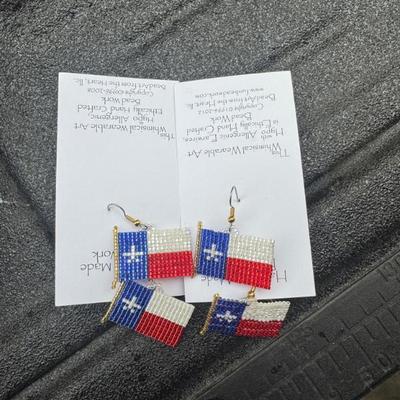 Made
This Whimsical Wearable Art
with Hypo Allergenic Earwires,
is Ethically Hand Crafted
Bead Work
Copyright ©1994-2012
BeadArt from the Heart, llc.
www.funbeadwork.com
Made
Work
This Whimsical Wearable Art
Hypo Allergenic
Ethically Hand Crafted
Bead Work
Copyright ©1996-2008
BeadArt from the Heart, llc.